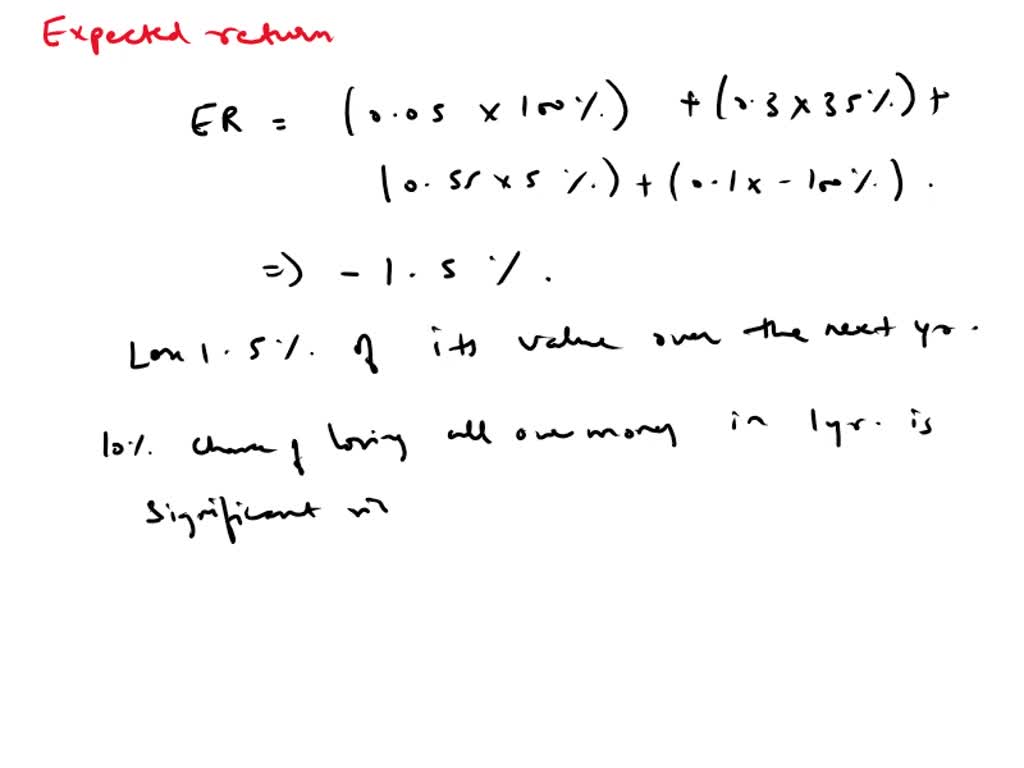 Expected return
ER = (0.05 x 100%) + (0.3 x 35%) +
(0.55 x 5%) + (0.1 x - 100%).
=> - 1.5 %.
1.5%. of its value over the next yr.
10%. of losing all money in 1yr. is
Significant